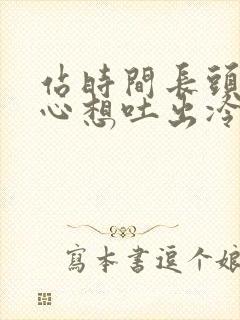 佔時間長頭
心想吐出冷
寫本書逗个娘